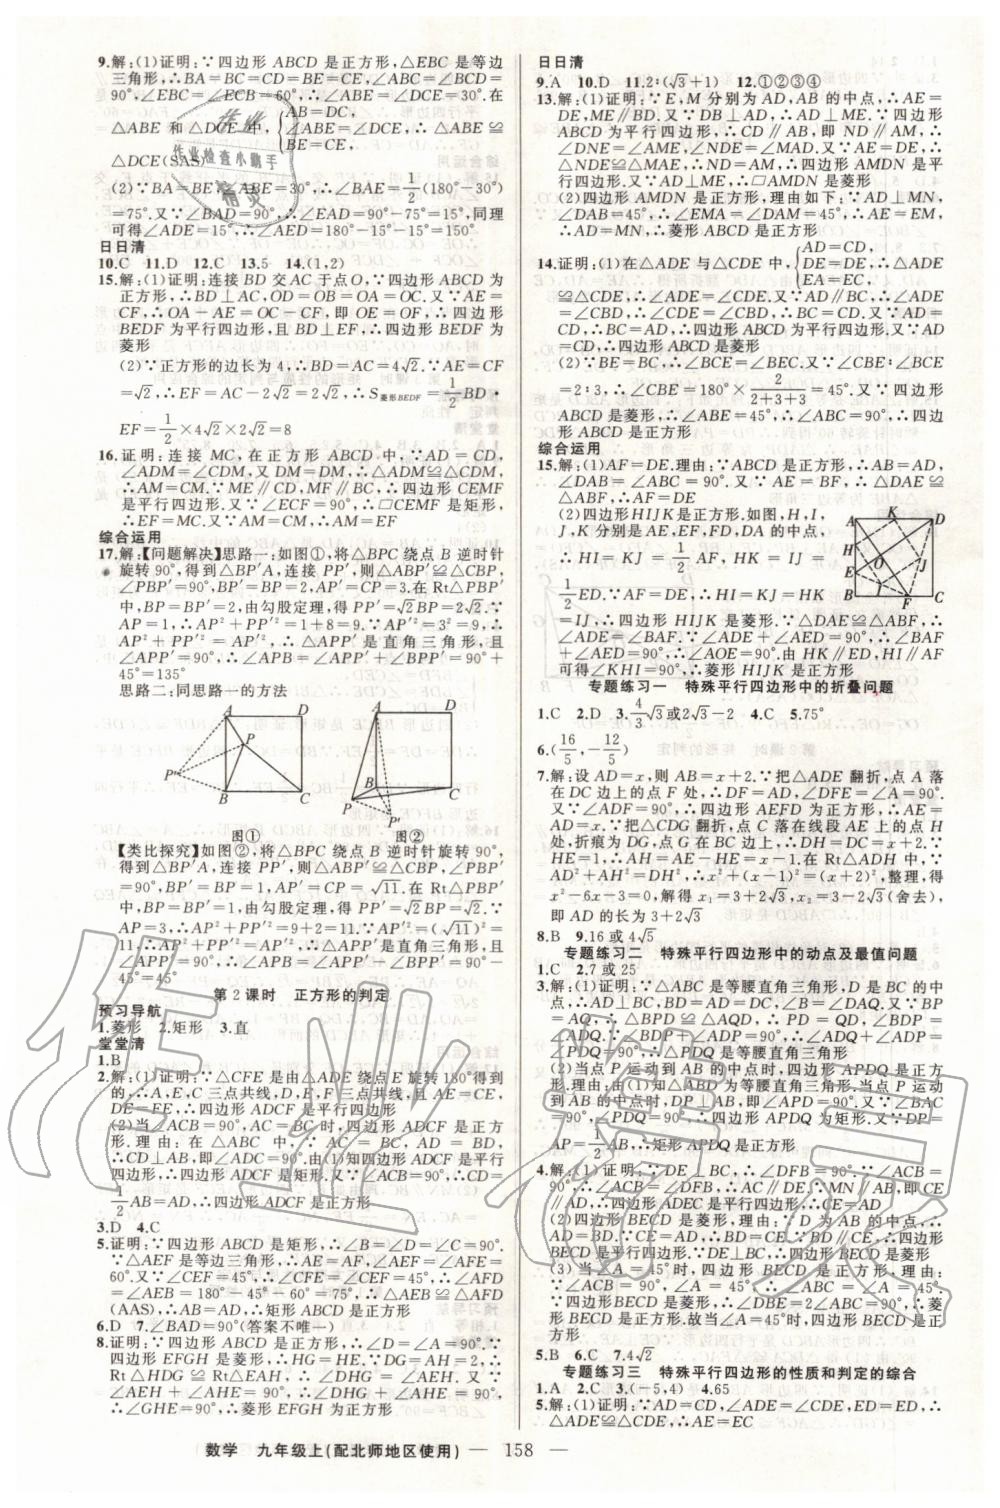 9.解:(1)证明:∵四边形ABCD是正方形,△EBC是等边
三角形,∴BA=BC=CD=BE=CE,∠ABC=∠BCD=
90°,∠EBC=∠ECB=60°,∴∠ABE=∠DCE=30°.在
△ABE和△DCE中,{AB=DC, ∠ABE=∠DCE,∴△ABE≌
△DCE(SAS)
(2)∵BA=BE,∠ABE=30°,∴∠BAE=1/2(180°-30°)
=75°.又∵∠BAD=90°,∴∠EAD=90°-75°=15°,同理
可得∠ADE=15°,∴∠AED=180°-15°-15°=150°
日日清
10.C 11.D 12.C 13.5 14.(1,2)
15.解:(1)证明:连接BD交AC于点O,∵四边形ABCD为
正方形,∴BD⊥AC,OD=OB=OA=OC.又∵AE=
CF,∴OA-AE=OC-CF,即OE=OF,∴四边形
BEDF为平行四边形,且BD⊥EF,∴四边形BEDF为
菱形
(2)∵正方形的边长为4,∴BD=AC=4√2.∵AE=CF
=√2,∴EF=AC-2√2=2√2,∴S菱形BEDF=1/2BD·
EF=1/2×4√2×2√2=8
16.证明:连接MC,在正方形ABCD中,∵AD=CD,
∠ADM=∠CDM,又DM=DM,∴△ADM≌△CDM,
∴AM=CM.∵ME∥CD,MF∥BC,∴四边形CEMF
是平行四边形.又∵∠ECF=90°,∴▱CEMF是矩形,
∴EF=MC.又∵AM=CM,∴AM=EF
综合运用
17.解:【问题解决】思路一:如图①,将△BPC绕点B逆时针
旋转90°,得到△BP′A,连接PP′,则△ABP′≌△CBP,
∠PBP′=90°,BP′=BP=2,AP′=CP=3.在Rt△PBP′
中,BP=BP′=2,由勾股定理,得PP′=√2BP=2√2.∵
AP=1,∴AP²+PP′²=1+8=9.又∵AP′²=3²=9,∴
AP²+PP′²=AP′²,∴△APP′是直角三角形,且
∠APP′=90°,∴∠APB=∠APP′+∠BPP′=90°+
45°=135°
思路二:同思路一的方法
A D P P′ B C
图①
A D B C P P′
图②
【类比探究】如图②,将△BPC绕点B逆时针旋转90°,
得到△BP′A,连接PP′,则△ABP′≌△CBP,∠PBP′
=90°,BP′=BP=1,AP′=CP=√11.在Rt△PBP′
中,BP=BP′=1,由勾股定理,得PP′=√2BP=√2.∵
AP=3,∴AP²+PP′²=9+2=11.又∵AP′²=(√11)²
=11,∴AP²+PP′²=AP′²,∴△APP′是直角三角形,且
∠APP′=90°,∴∠APB=∠APP′-∠BPP′=90°-
45°=45°
第2课时 正方形的判定
预习导航
1.菱形 2.矩形 3.直
堂堂清
1.B
2.解:(1)证明:∵△CFE是由△ADE绕点E旋转180°得到
的,∴A,E,C三点共线,D,E,F三点共线,且AE=CE,
DE=FE,∴四边形ADCF是平行四边形
(2)当∠ACB=90°,AC=BC时,四边形ADCF是正方
形.理由:在△ABC中,∵AC=BC,AD=BD,
∴CD⊥AB,即∠ADC=90°.由(1)知四边形ADCF是平行
四边形,∴四边形ADCF是矩形.又∵∠ACB=90°,∴CD=
1/2AB=AD,∴四边形ADCF是正方形
3.D 4.C
5.证明:∵四边形ABCD是矩形,∴∠B=∠D=∠C=90°.
∵△AEF是等边三角形,∴AE=AF,∠AEF=∠AFE=
60°.又∵∠CEF=45°,∴∠CFE=∠CEF=45°,∴∠AFD
=∠AEB=180°-45°-60°=75°,∴△AEB≌△AFD
(AAS),∴AB=AD,∴矩形ABCD是正方形
6.D 7.∠BAD=90°(答案不唯一)
8.证明:∵四边形ABCD是正方形,∴∠D=∠A=90°.∵
四边形EFGH是菱形,∴HG=HE.
Rt△HDG≌Rt△EAH,∴∠DHG=∠AEH.又∵
∠AEH+∠AHE=90°,∴∠DHG+∠AHE=90°,
∴∠GHE=90°,∴菱形EFGH为正方形
日日清
9.A 10.D 11.2:(√3+1) 12.①②③④
13.解:(1)证明:∵E,M分别为AD,AB的中点,∴AE=
DE,ME∥BD.又∵DB⊥AD,∴AD⊥ME.∵四边形
ABCD为平行四边形,∴DC∥AB,即ND∥AM,∴
∠DNE=∠AME,∠NDE=∠MAD.又∵AE=DE,∴
△NDE≌△MAE,∴ND=AM,∴四边形AMDN是平行
四边形.又∵AD⊥ME,∴▱AMDN是菱形
(2)四边形AMDN是正方形,理由如下:∵AD⊥MN,
∠DAB=45°,∴∠EMA=∠DAM=45°,∴AE=EM,
∴AD=MN,∴菱形ABCD是正方形
14.证明:(1)在△ADE与△CDE中,{AD=CD, DE=DE, EA=EC,∴△ADE
≌△CDE,∴∠ADE=∠CDE.又∵AD∥BC,∴∠ADE
=∠CBD,∴∠CDE=∠CBD,∴BC=CD.又∵AD=
CD,∴BC=AD,∴四边形ABCD为平行四边形.又∵AD=
CD,∴四边形ABCD是菱形
(2)∵BE=BC,∴∠BCE=∠BEC.又∵∠CBE:∠BCE
=2:3,∴∠CBE=180°×2/(2+3+3)=45°.又∵四边形
ABCD是菱形,∴∠ABE=45°,∴∠ABC=90°,∴四边
形ABCD是正方形
综合运用
15.解:(1)AF=DE.理由:∵四边形ABCD是正方形,∴AB=AD,
∠DAB=∠ABC=90°.又∵AE=BF,∴△DAE≌
△ABF,∴AF=DE
(2)四边形HIJK是正方形.如图,H,I,
J,K分别是AE,EF,FD,DA的中点,
∴HI=KJ=1/2AF,HK=IJ=
1/2ED.∵AF=DE,∴HI=KJ=HK
=IJ,∴四边形HIJK是菱形.∵△DAE≌△ABF,∴
∠ADE=∠BAF.∵∠ADE+∠AED=90°,∴∠BAF
+∠AED=90°,∴∠AOE=90°.由HK∥ED,HI∥AF
可得∠KHI=90°,∴菱形HIJK是正方形
A K D H O J E I B F C
专题练习一 特殊平行四边形中的折叠问题
1.C 2.D 3.4/3√3或2√3-2 4.C 5.75°
6.(16/5,-12/5)
7.解:设AD=x,则AB=x+2.∵把△ADE翻折,点A落
在DC边上的点F处,∴DF=AD,∠DFE=∠A=90°.
又∵∠ADF=90°,∴四边形AEFD为正方形,∴AE=
AD=x.∵把△CDG翻折,点C落在线段AE上的点H
处,折痕为DG,点G在BC边上,∴DH=DC=x+2.∵
HE=1,∴AH=AE-HE=x-1.在Rt△ADH中,∵
AD²+AH²=DH²,∴x²+(x-1)²=(x+2)²,整理,得
x²-6x-3=0,解得x₁=3+2√3,x₂=3-2√3(舍去),
即AD的长为3+2√3
8.B 9.16或4√5
专题练习二 特殊平行四边形中的动点及最值问题
1.C 2.7或25
3.解:(1)证明:∵△ABC是等腰直角三角形,D是BC的中
点,∴AD⊥BC,BD=AD=DC,∠B=∠DAQ.又∵BP
=AQ,∴△BPD≌△AQD,∴PD=QD,∠BDP=
∠ADQ.∵∠BDP+∠ADP=90°,∴∠ADQ+∠ADP=
∠PDQ=90°,∴△PDQ是等腰直角三角形
(2)当点P运动到AB的中点时,四边形APDQ是正方
形.理由:由(1)知△ABD为等腰直角三角形,当点P运动
到AB的中点时,DP⊥AB,即∠APD=90°.又∵∠BAC
=90°,∠PDQ=90°,∴四边形APDQ为矩形.又∵DP=
AP=1/2AB,∴矩形APDQ是正方形
4.解:(1)证明:∵DE⊥BC,∴∠DFB=90°.∵∠ACB=
90°,∴∠ACB=∠DFB,∴AC∥DE.∵MN∥AB,即CE
∥AD,∴四边形ADEC是平行四边形,∴CE=AD
(2)四边形BECD是菱形,理由:∵D为AB的中点,∴
AD=BD.∵CE=AD,∴BD=CE.∵BD∥CE,∴四边形
BECD是平行四边形.∵DE⊥BC,∴四边形BECD是菱形
(3)当∠A=45°时,四边形BECD是正方形,理由:
∵∠ACB=90°,∠A=45°,∴∠ABC=∠A=45°.∵
四边形BECD是菱形,∴∠DBE=2∠ABC=90°,∴菱形
BECD是正方形.故当∠A=45°时,四边形BECD是正
方形
5.B 6.C 7.4√2
专题练习三 特殊平行四边形的性质和判定的综合
1.A 2.C 3.(-5,4) 4.65
5.解:(1)证明:∵AD=CD,∠ADE=∠CDE,DE=DE,∴
△ADE≌△CDE,∴AE=EC
数学 九年级上(配北师地区使用) — 158 —
作业
作业检查小助手
精灵
作业精灵